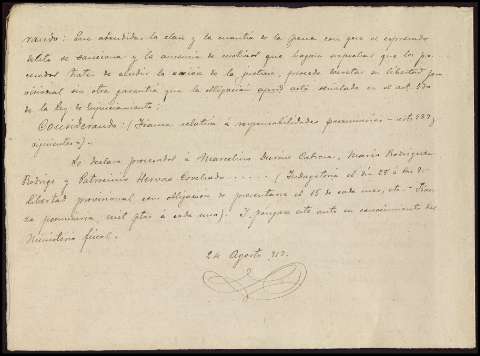 rando: Que atendidas la clase y la cuantía de la pena con que el expresado
delito se sanciona y la ausencia de motivos que hagan sospechar que los pro-
cesados traten de eludir la acción de la justicia, procede decretar su libertad pro
visional sin otra garantía que la obligación apud acta señalada en el art. 530
de la Ley de Enjuiciamiento;
Considerando: (Fianza relativa á responsabilidades pecuniarias - arts 589 y
siguientes).
Se declara procesados á Marcelino Durán, María Rodríguez
Rodrigo y Patrocinio Hervás ..... (Indagatoria el día 28 á las
libertad provisional con obligación de presentarse el 15 de cada mes, etc - Fian
za pecuniaria, mil ptas á cada uno). Y póngase este auto en conocimiento del
Ministerio fiscal.
24 Agosto 912.